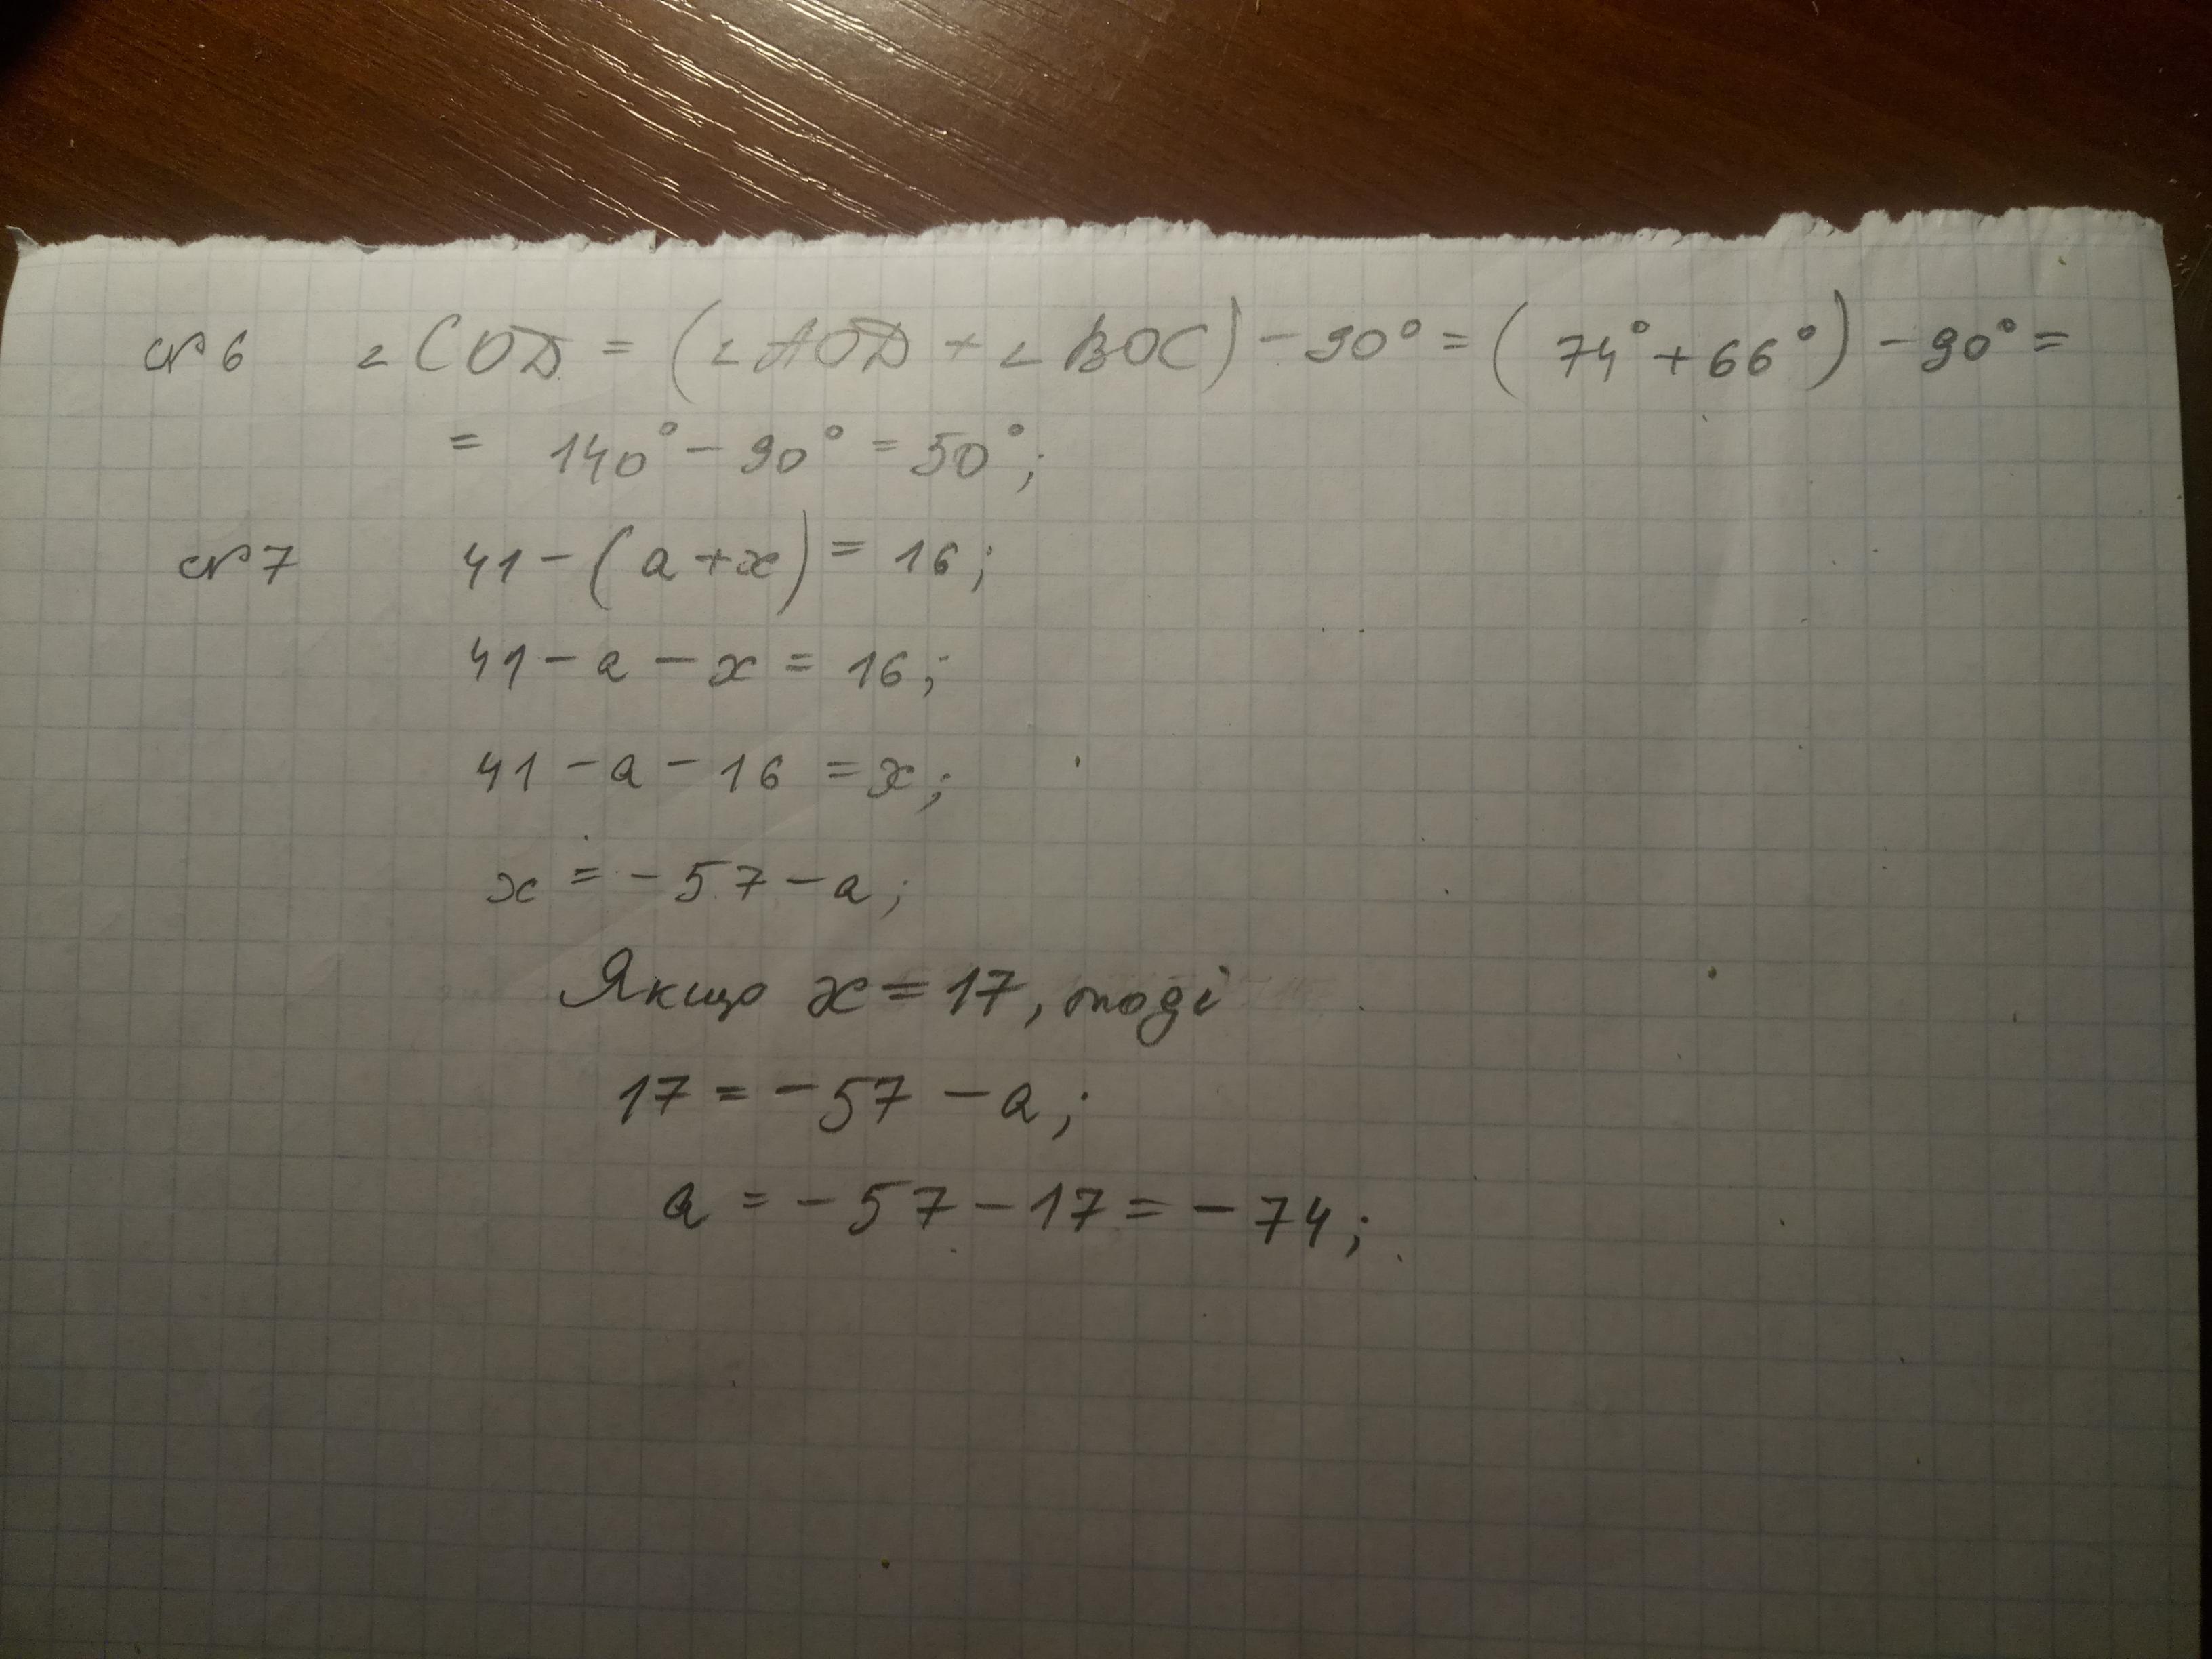 №6 ∠COD = (∠AOD + ∠BOC) - 90° = (74° + 66°) - 90° =
= 140° - 90° = 50°;
№7 41 - (a + x) = 16;
41 - a - x = 16;
41 - a - 16 = x;
x = -57 - a;
Якщо x = 17, тоді
17 = -57 - a;
a = -57 - 17 = -74;